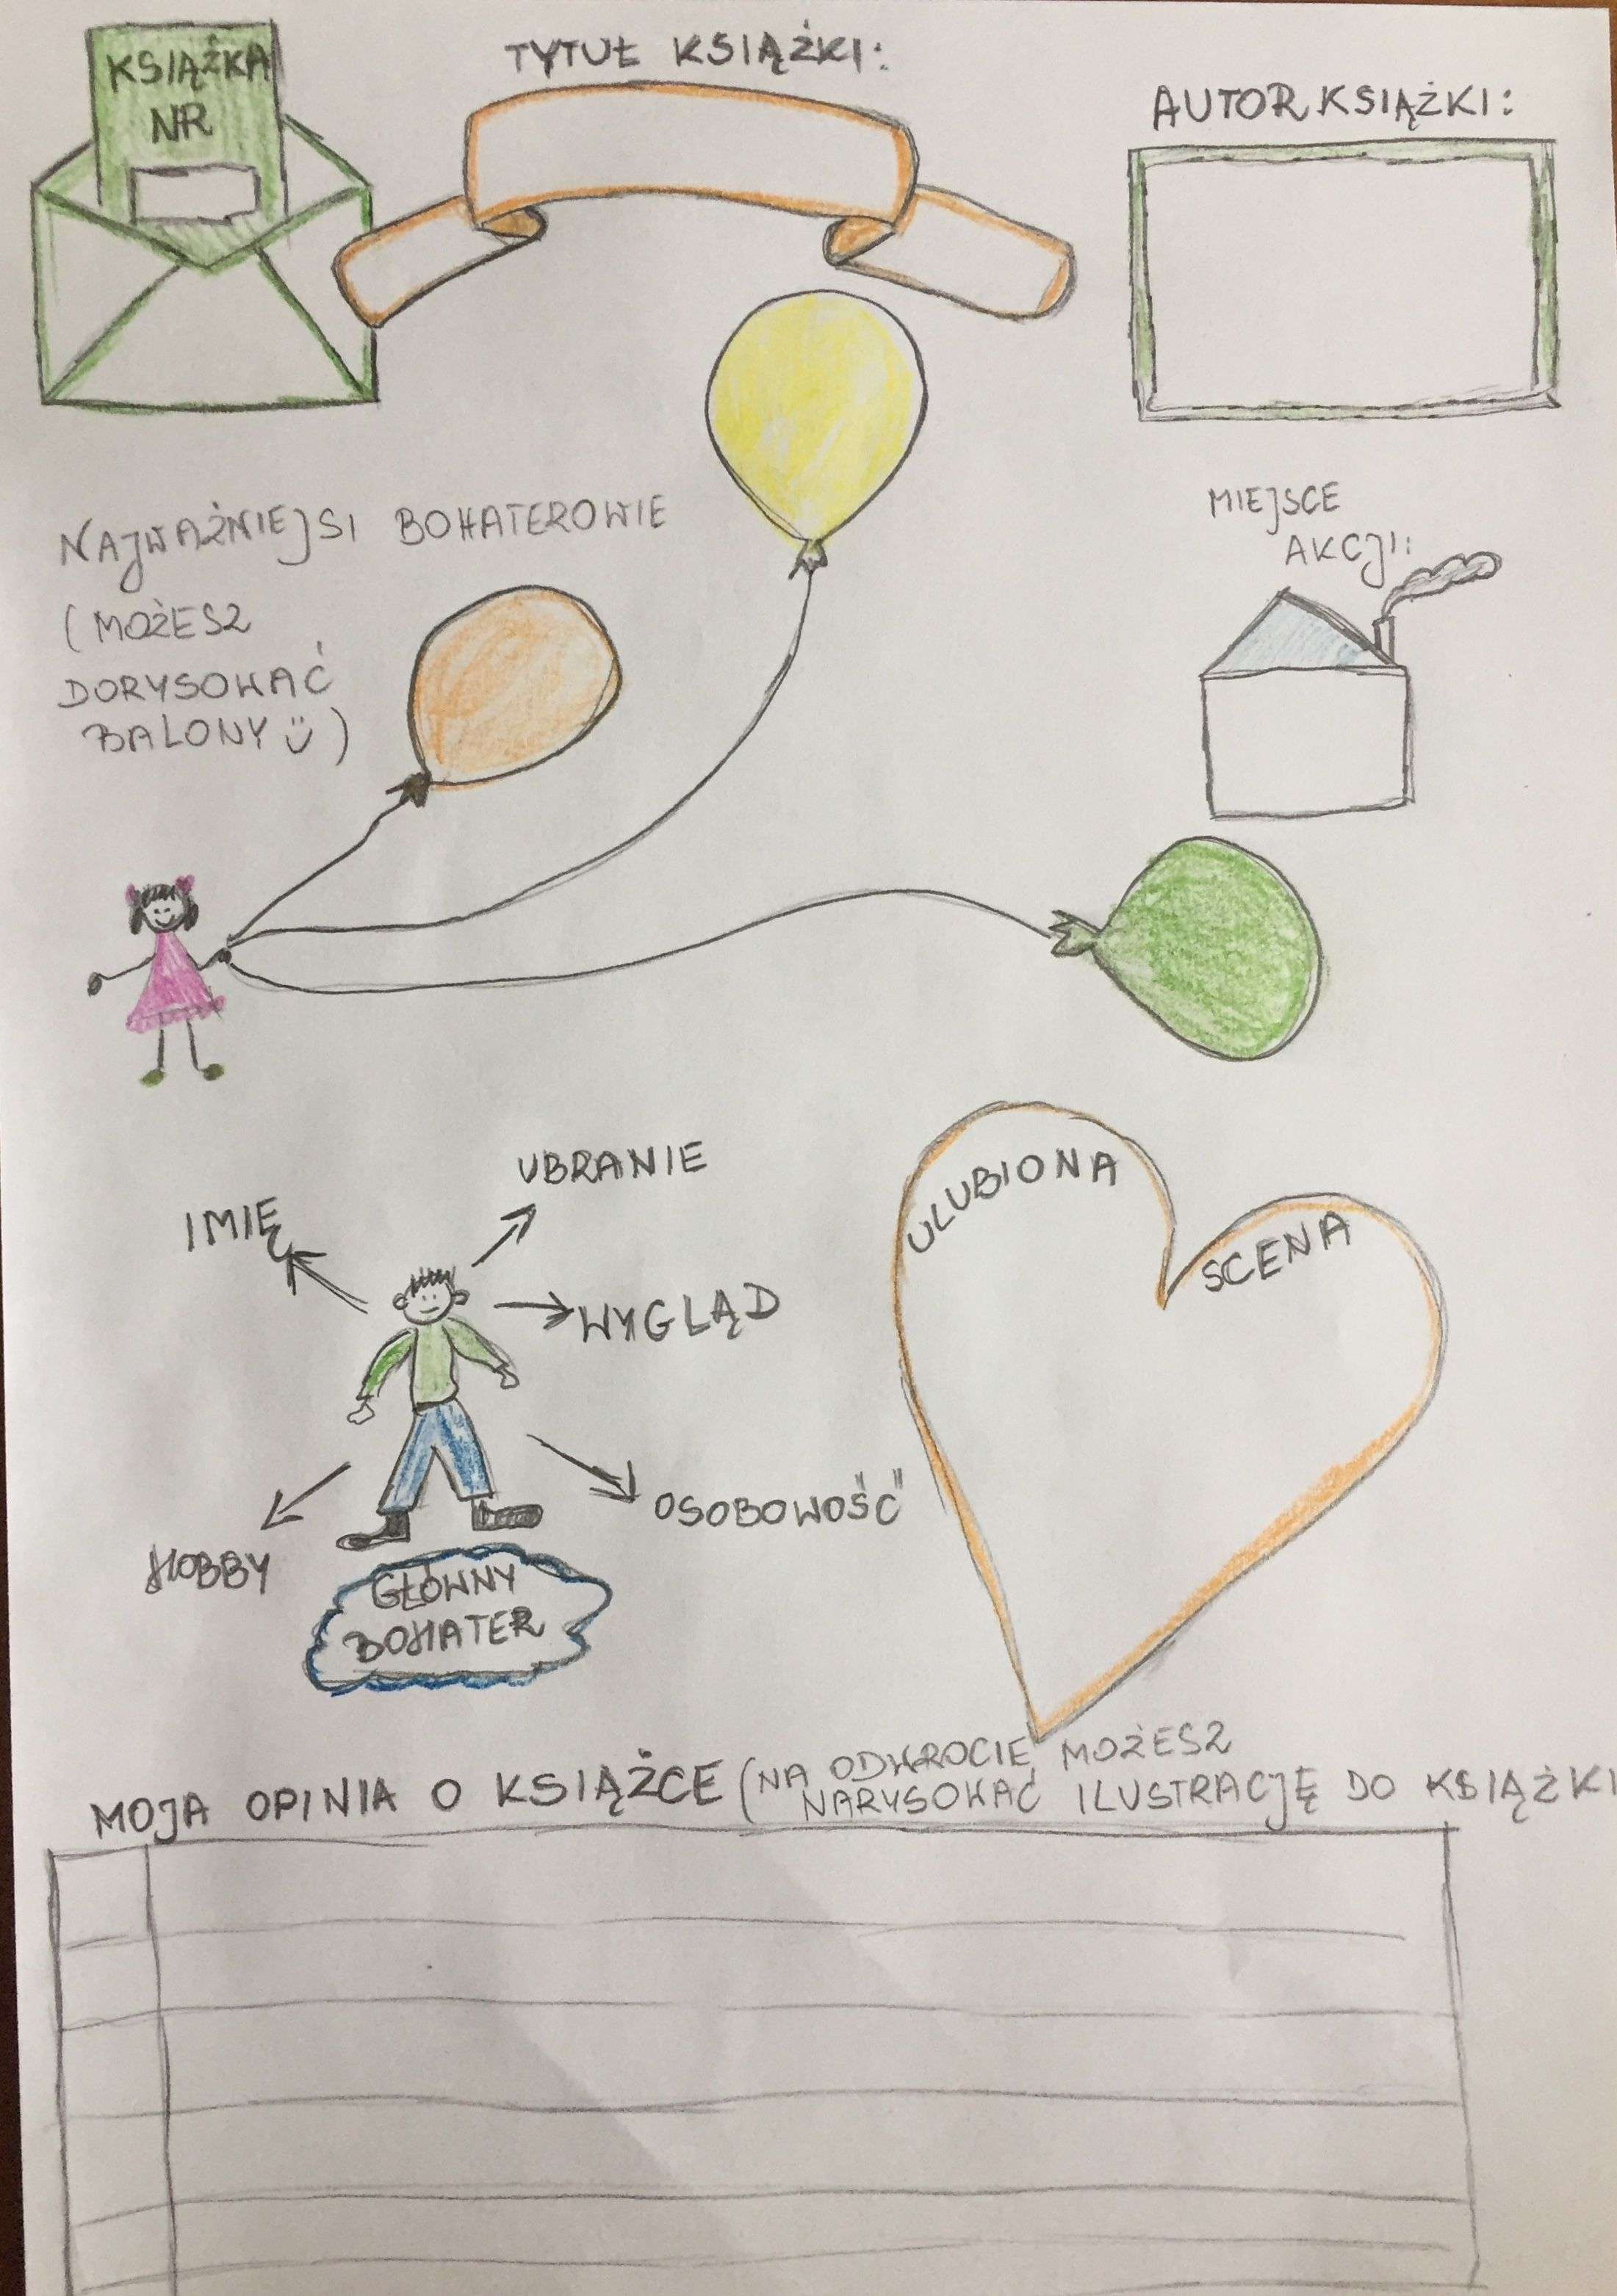 KSIĄŻKA
NR
TYTUŁ KSIĄŻKI:
AUTOR KSIĄŻKI:
NAJWAŻNIEJSI BOHATEROWIE
(MOŻESZ
DORYSOWAĆ
BALONY)
MIEJSCE
AKCJI:
UBRANIE
IMIĘ
WYGLĄD
OSOBOWOŚĆ
HOBBY
GŁÓWNY
BOHATER
ULUBIONA
SCENA
MOJA OPINIA O KSIĄŻCE (NA ODWROCIE MOŻESZ
NARYSOWAĆ ILUSTRACJĘ DO KSIĄŻKI